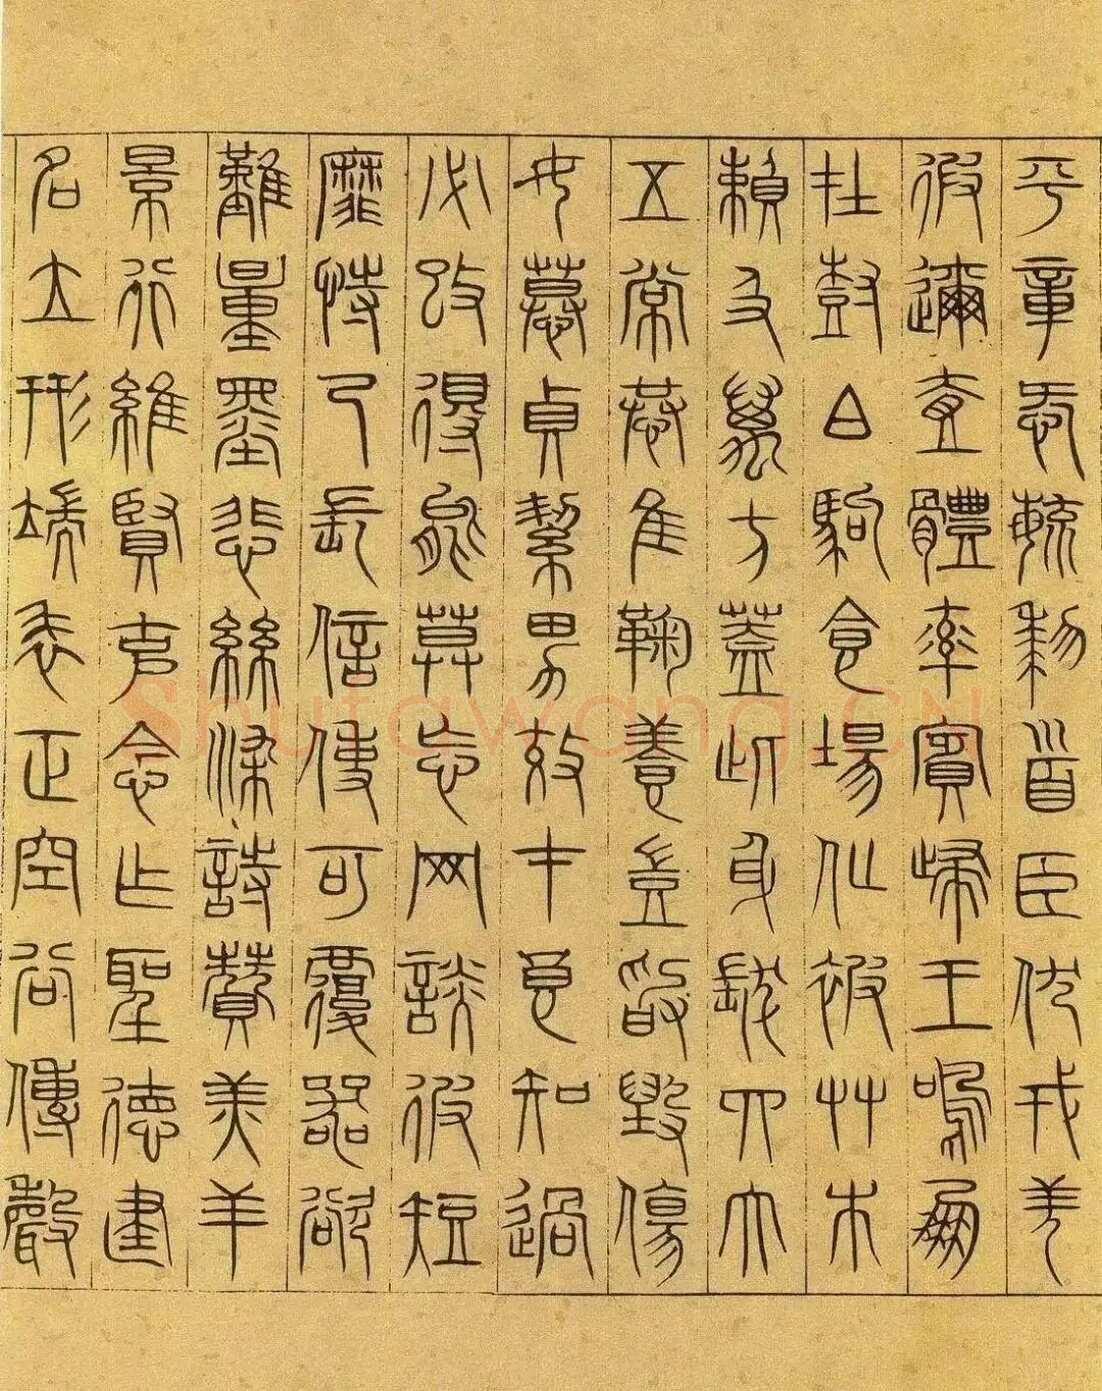 平章愛育黎首臣伏戎羌
遐邇壹體率賓歸王鳴鳳
在尌白駒食場化被艸木
賴及萬方蓋此身髮四大
五常恭惟鞠養豈敢毀傷
女慕貞絜男效才良知過
必改得能莫忘网談彼短
靡恃己長信使可覆器欲
難量墨悲絲染詩贊羔羊
景行維賢克念乍聖德建
名立形端表正空谷傳聲
Shufawang.CN